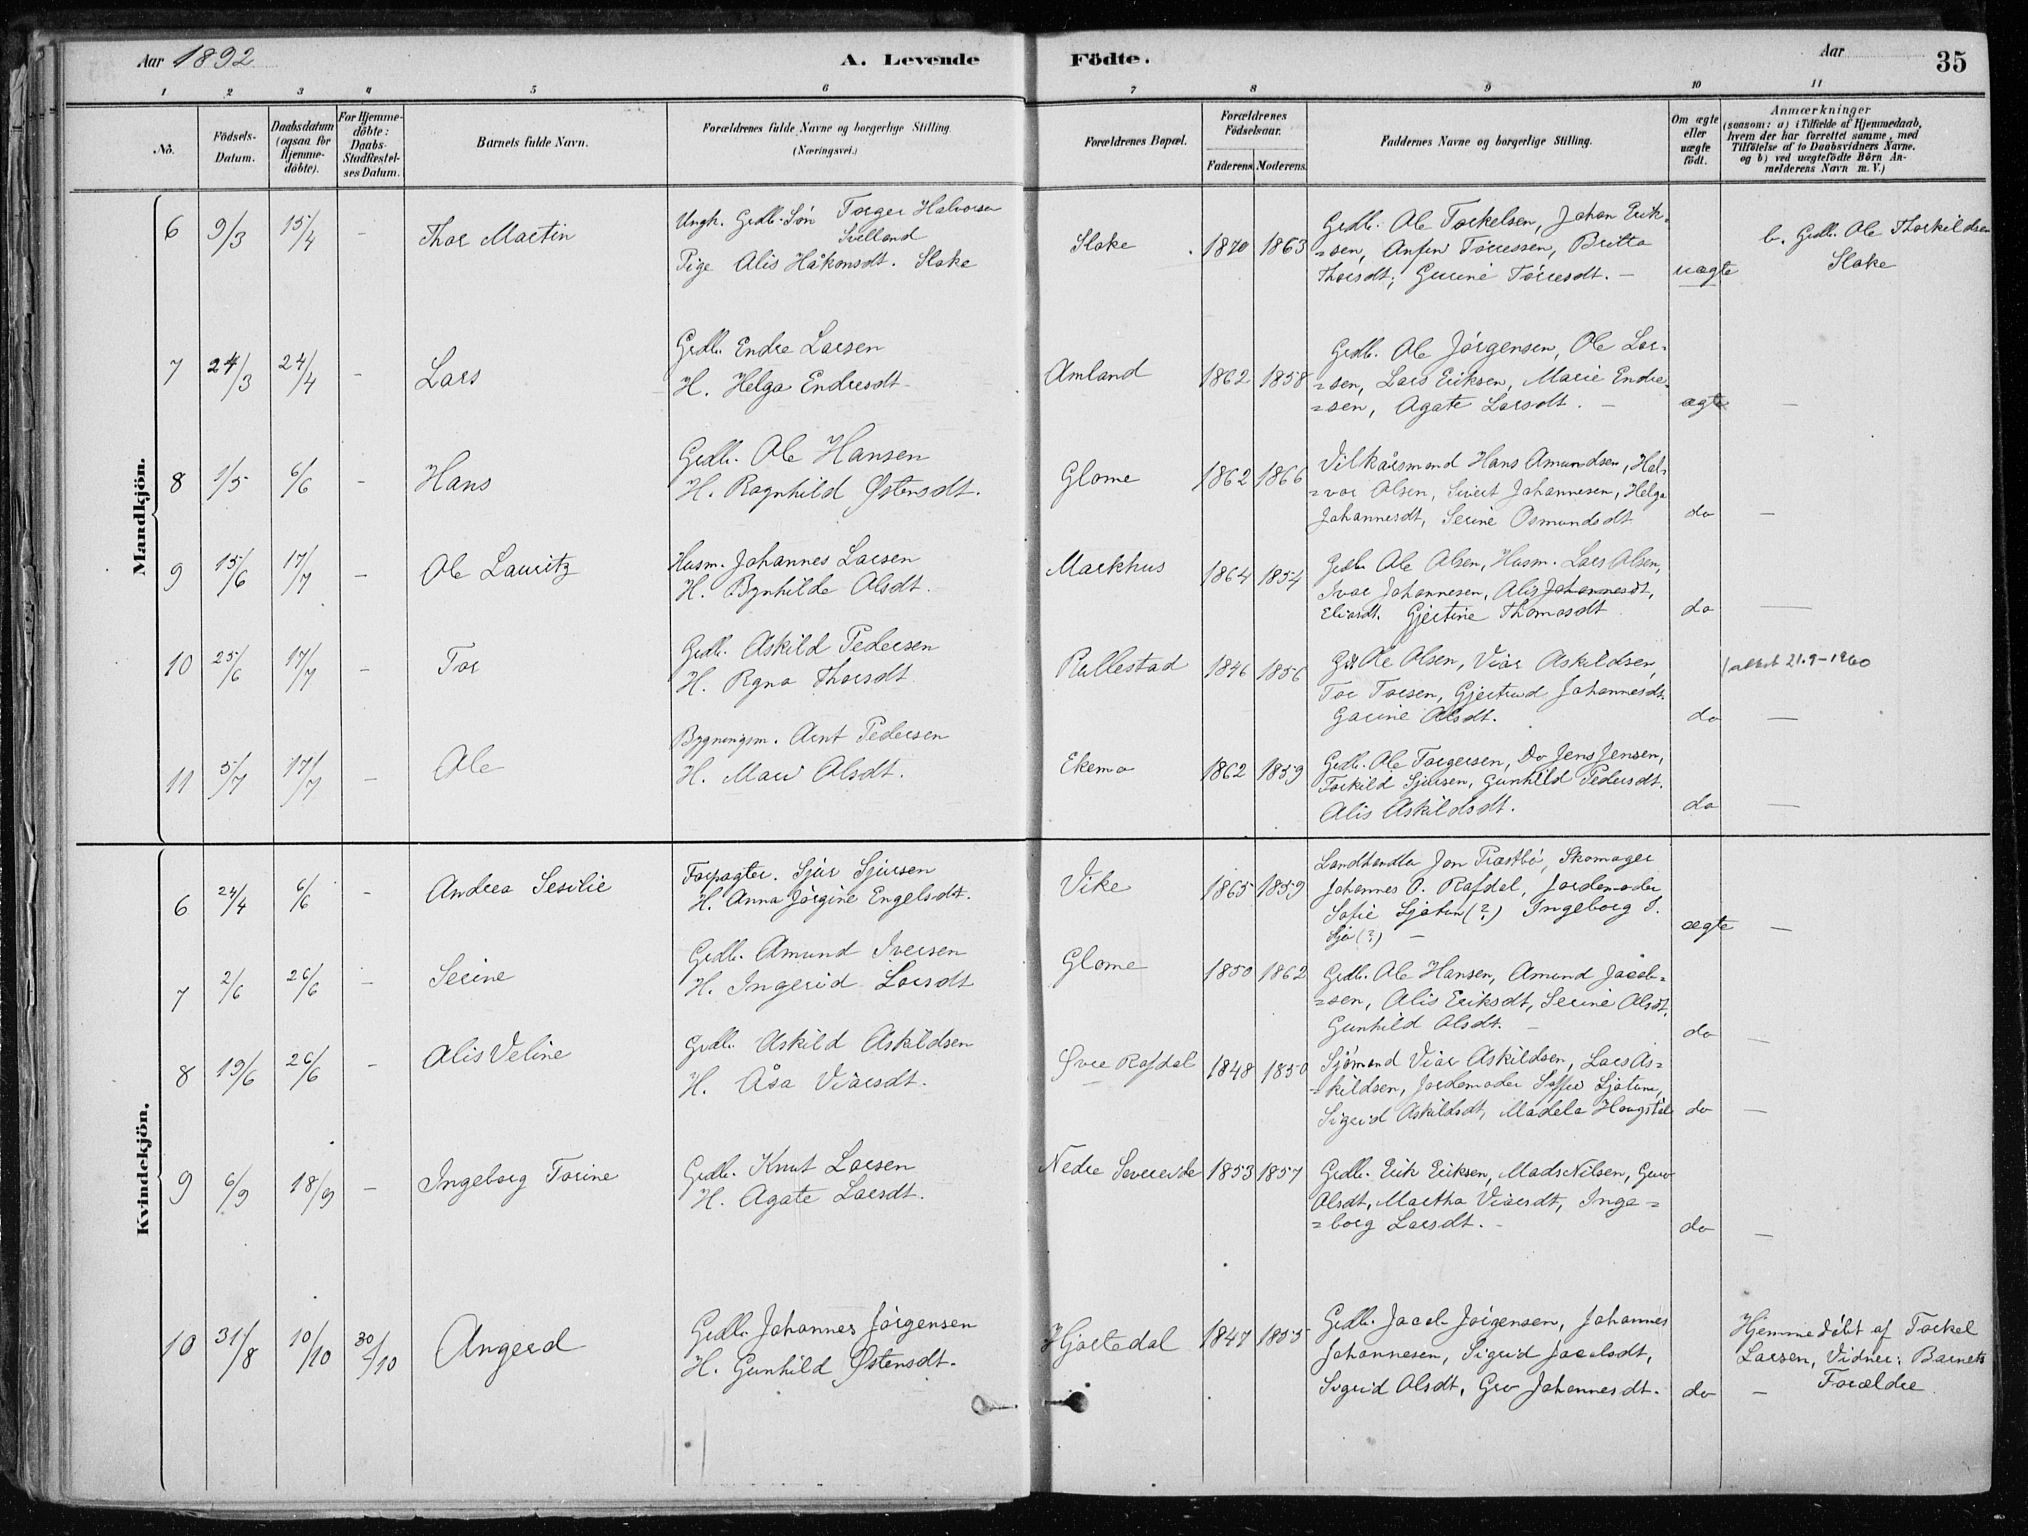 Aar 1892
A. Levende Födte.
Aar
35
1 2 3 4 5 6 7 8 9 10 11
No.
Födsels-Datum.
Daabsdatum (ogsaa for Hjemme-döbte).
For Hjemme-döbte: Daabs-Stadfæstel-ses Datum.
Barnets fulde Navn.
Forældrenes fulde Navne og borgerlige Stilling. (Næringsvei.)
Forældrenes Bopæl.
Forældrenes Födselsaar.
Faderens. Moderens.
Faddernes Navne og borgerlige Stilling.
Om ægte eller uægte födt.
Anmærkninger
(saasom: a) i Tilfælde af Hjemmedaab,
hvem der har forrettet samme, med
Tilföielse af to Daabsvidners Navne.
og b) ved uægtefödte Börn An-
melderens Navn m. V.)
Mandkjön.
6 9/3 15/4 - Thor Martin
Ungk. Grdb. Søn Torger Halvorsen
Svelland
Pige Alis Håkonsdt. Sloke
Sloke 1870 1863
Grdb. Ole Torkelsen, Johan Erik-
=sen, Anfin Tørressen, Britta
Thorsdt, Gurine Tørresdt. -
uægte
b. Grdb. Ole Thorkildsen
Sloke
7 24/3 24/4 - Lars
Grdb. Endre Larsen
H. Helga Endresdt
Amland 1862 1858
Grdb. Ole Jørgensen, Ole Lar-
=sen, Lars Eriksen, Marie Endre-
=sen, Agate Larsdt. -
ægte -
8 1/5 6/6 - Hans
Grdb. Ole Hansen
H. Ragnhild Østensdt.
Glome 1862 1866
Vilkårsmand Hans Amundsen, Hal-
=vor Olsen, Sivert Johannesen, Helga
Johannesdt, Serine Osmundsdt
do -
9 15/6 17/7 - Ole Lauritz
Husm. Johannes Larsen
H. Bynhilde Olsdt.
Markhus 1864 1854
Grdb Ole Olsen, Husm. Lars Olsen,
Ivar Johannesen, Alis Johannesdt,
Eliasdt. Gjertine Thomasdt
do -
10 25/6 17/7 - Tor
Grdb. Askild Pedersen
H. Rgna Thorsdt
Rullestad 1846 1856
Gdb Ole Olsen, Viar Askildsen,
Tor Torsen, Gjertrud Johannesdt.
Garine Olsdt.
do -
attest 21.9-1960
11 5/7 17/7 - Ole
Bygningsm. Arnt Pedersen
H. Mari Olsdt.
Ekemo 1862 1859
Grdb. Ole Torgersen, Do Jens Jensen,
Torkild Sjursen, Gunhild Pedersdt.
Alis Askildsdt.
do -
Kvindekjön.
6 24/4 6/6 - Andrea Sesilie
Forpagter. Sjur Sjursen
H. Anna Jørgine Engelsdt.
Vike 1865 1859
Landhandler Jon Præstbø, Skomager
Johannes O. Rafdal, Jordemoder
Sofie Ljotun (?) Ingeborg S.
Sjo (?) -
ægte -
7 2/6 26/6 - Serine
Grdb. Amund Iversen
H. Ingerid Larsdt
Glome 1850 1862
Grdb. Ole Hansen, Amund Jacob-
=sen, Alis Eriksdt, Serine Olsdt,
Gunhild Olsdt. -
do -
8 19/6 26/6 - Alis Veline
Grdb. Askild Askildsen
H. Åsa Viarsdt.
Øvre Rafdal 1848 1850
Sjømand Viar Askildsen, Lars As-
=kildsen, Jordemoder Soffie Ljotun,
Sigrid Askildsdt, Madela Hougstøl
do -
9 6/9 18/9 - Ingeborg Torine
Grdb. Knut Larsen
H. Agate Larsdt.
Nedre Severeide 1853 1857
Grdb. Erik Eriksen, Mads Nilsen, Guro
Olsdt, Martha Viarsdt, Inge-
=borg Larsdt. -
do -
10 31/8 10/10 30/10 Angerd
Grdb. Johannes Jørgensen
H. Gunhild Østensdt.
Hjortedal 1847 1855
Grdb. Jacob Jørgensen, Johannes
Johannesen, Sigrid Jacobsdt,
Sigrid Olsdt, Gro Johannesdt.
do -
Hjemmedöbt af Torkel
Larsen, Vidner: Barnets
Forældre